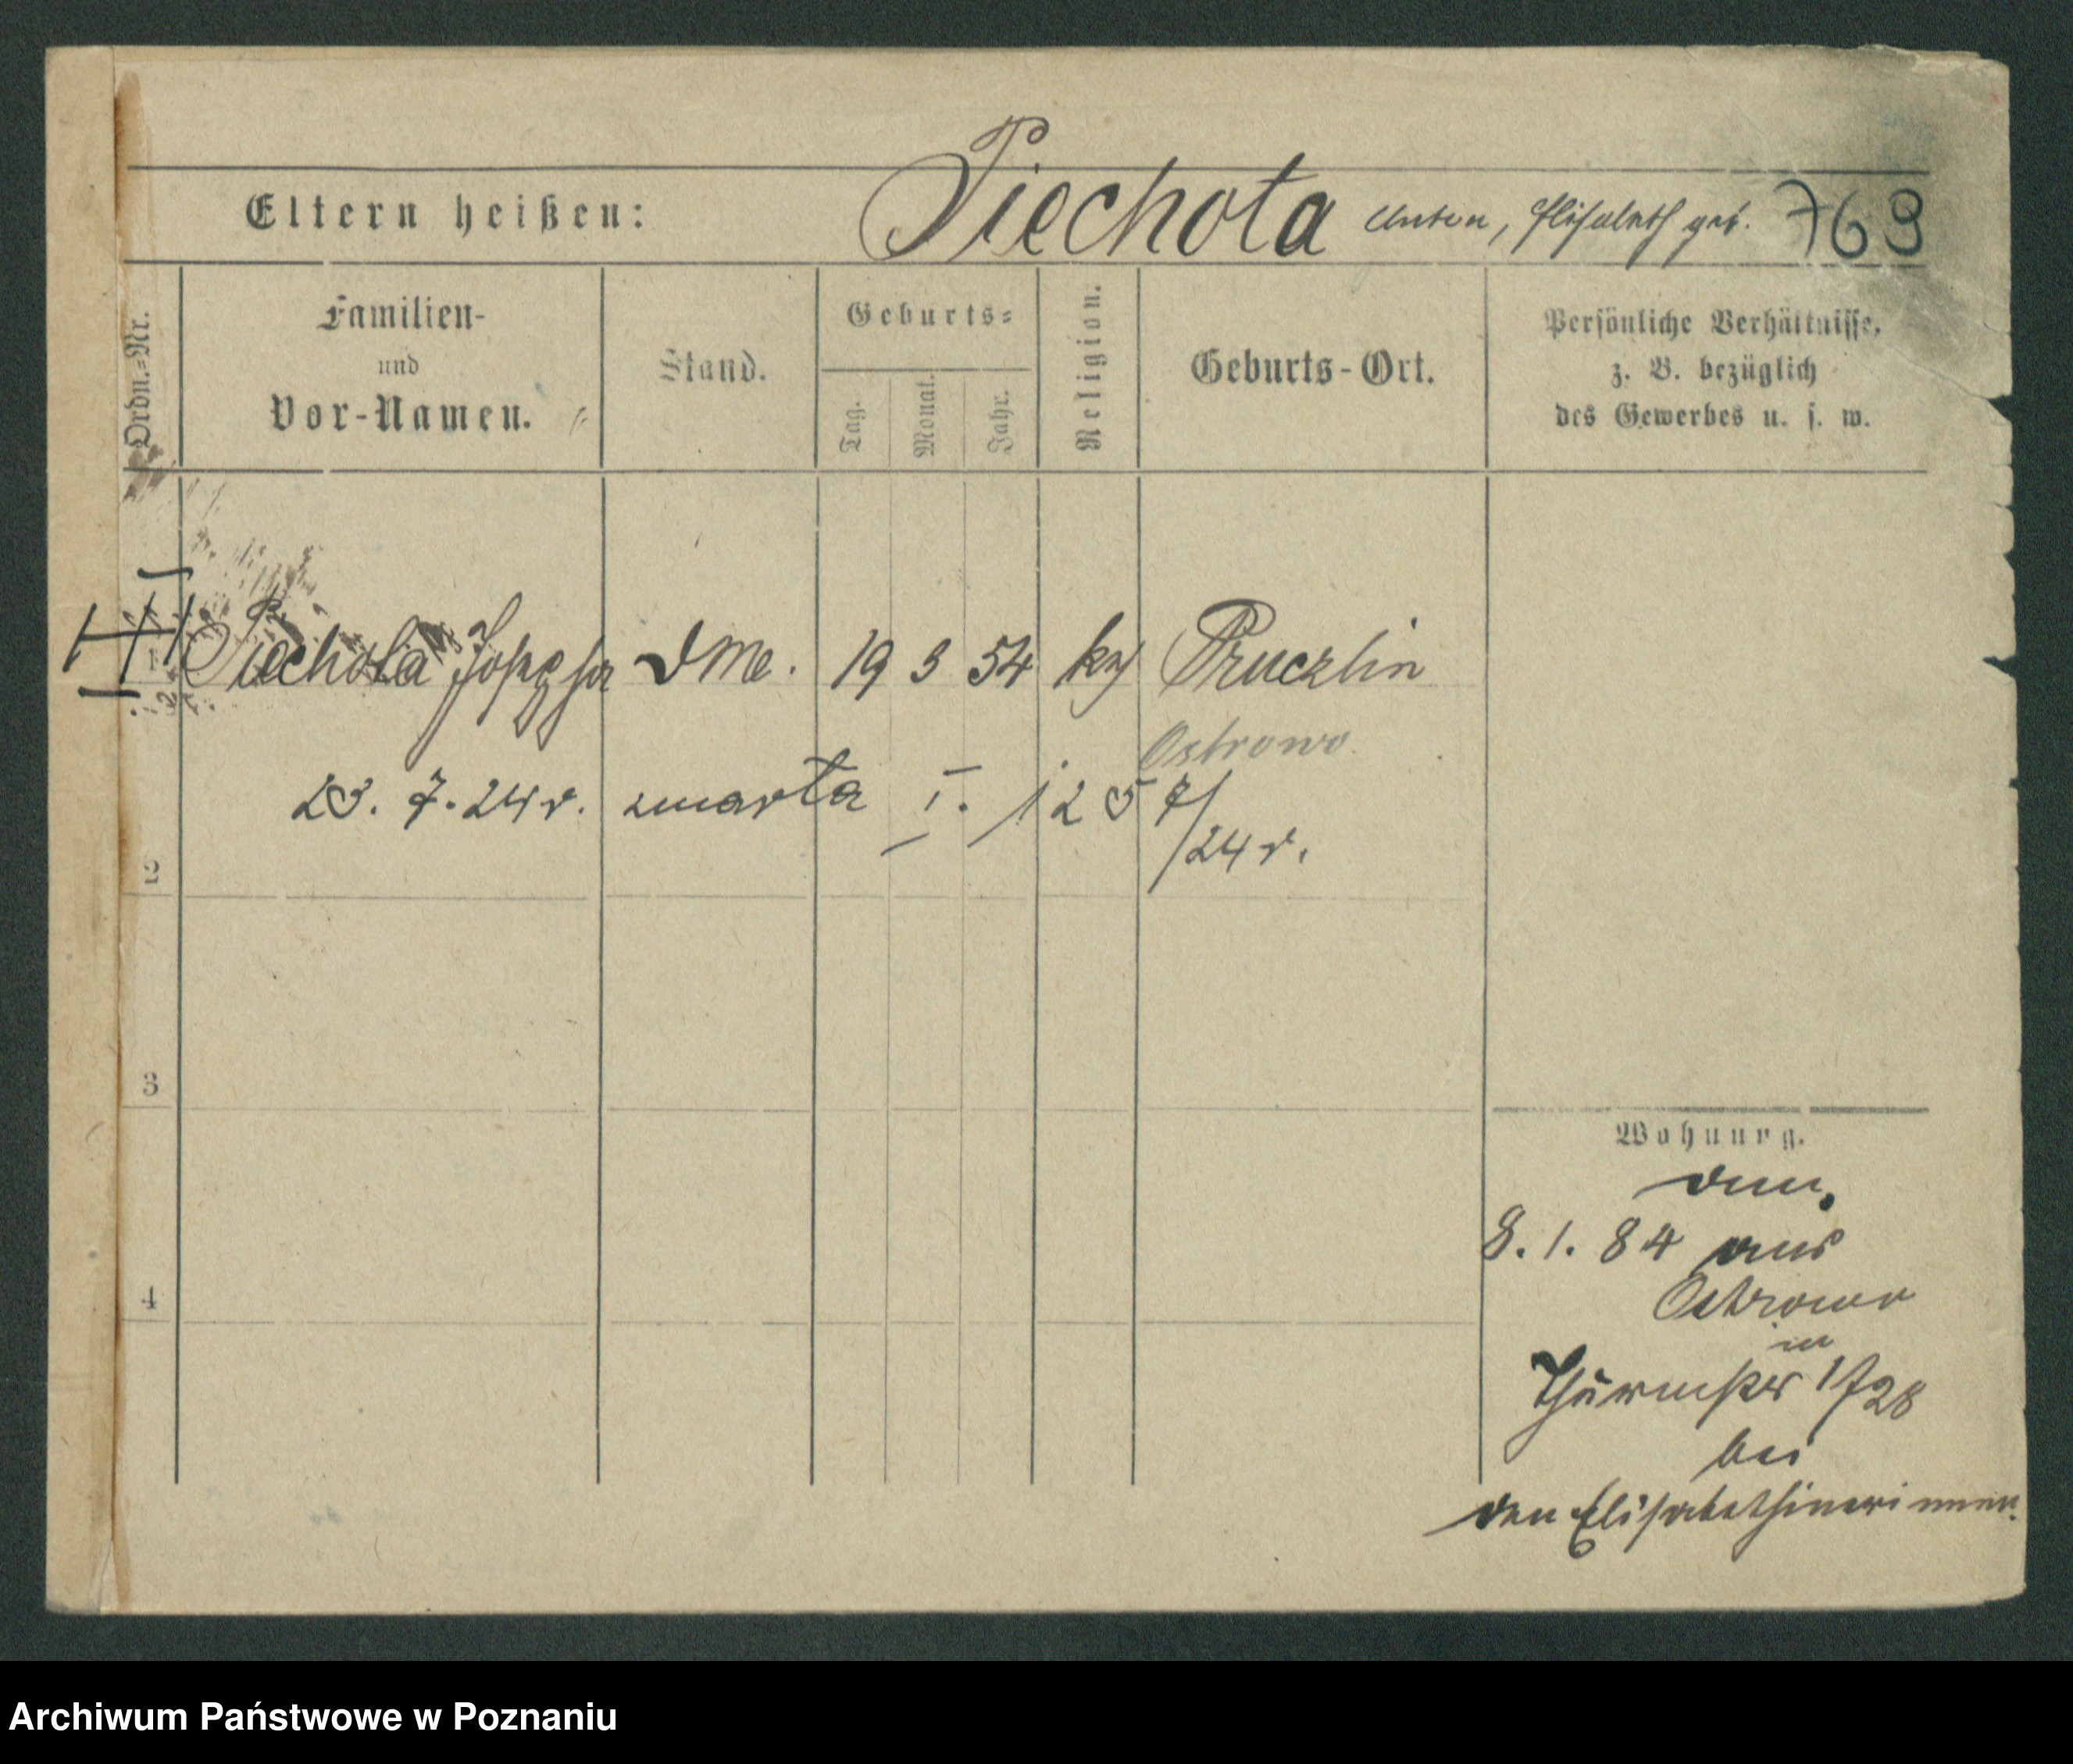 Eltern heißen: Piechota Anton, Elisabeth geb. 769
Ordn.=Nr.
Familien-
und
Vor-Namen.
Stand.
Geburts=
Tag.
Monat.
Jahr.
Religion.
Geburts-Ort.
Persönliche Verhältnisse,
z. B. bezüglich
des Gewerbes u. s. w.
1 Piechota Josepha 19 3 54 Pruczlin
Ostrowo
23. 7. 24 r. zmarła I. 1257/
/24 r.
2
3
4
Wohnung.
8. 1. 84 aus
Ostrowo
in
Thurmstr 1/728
bei
den Elisabethinerinnen.
Archiwum Państwowe w Poznaniu